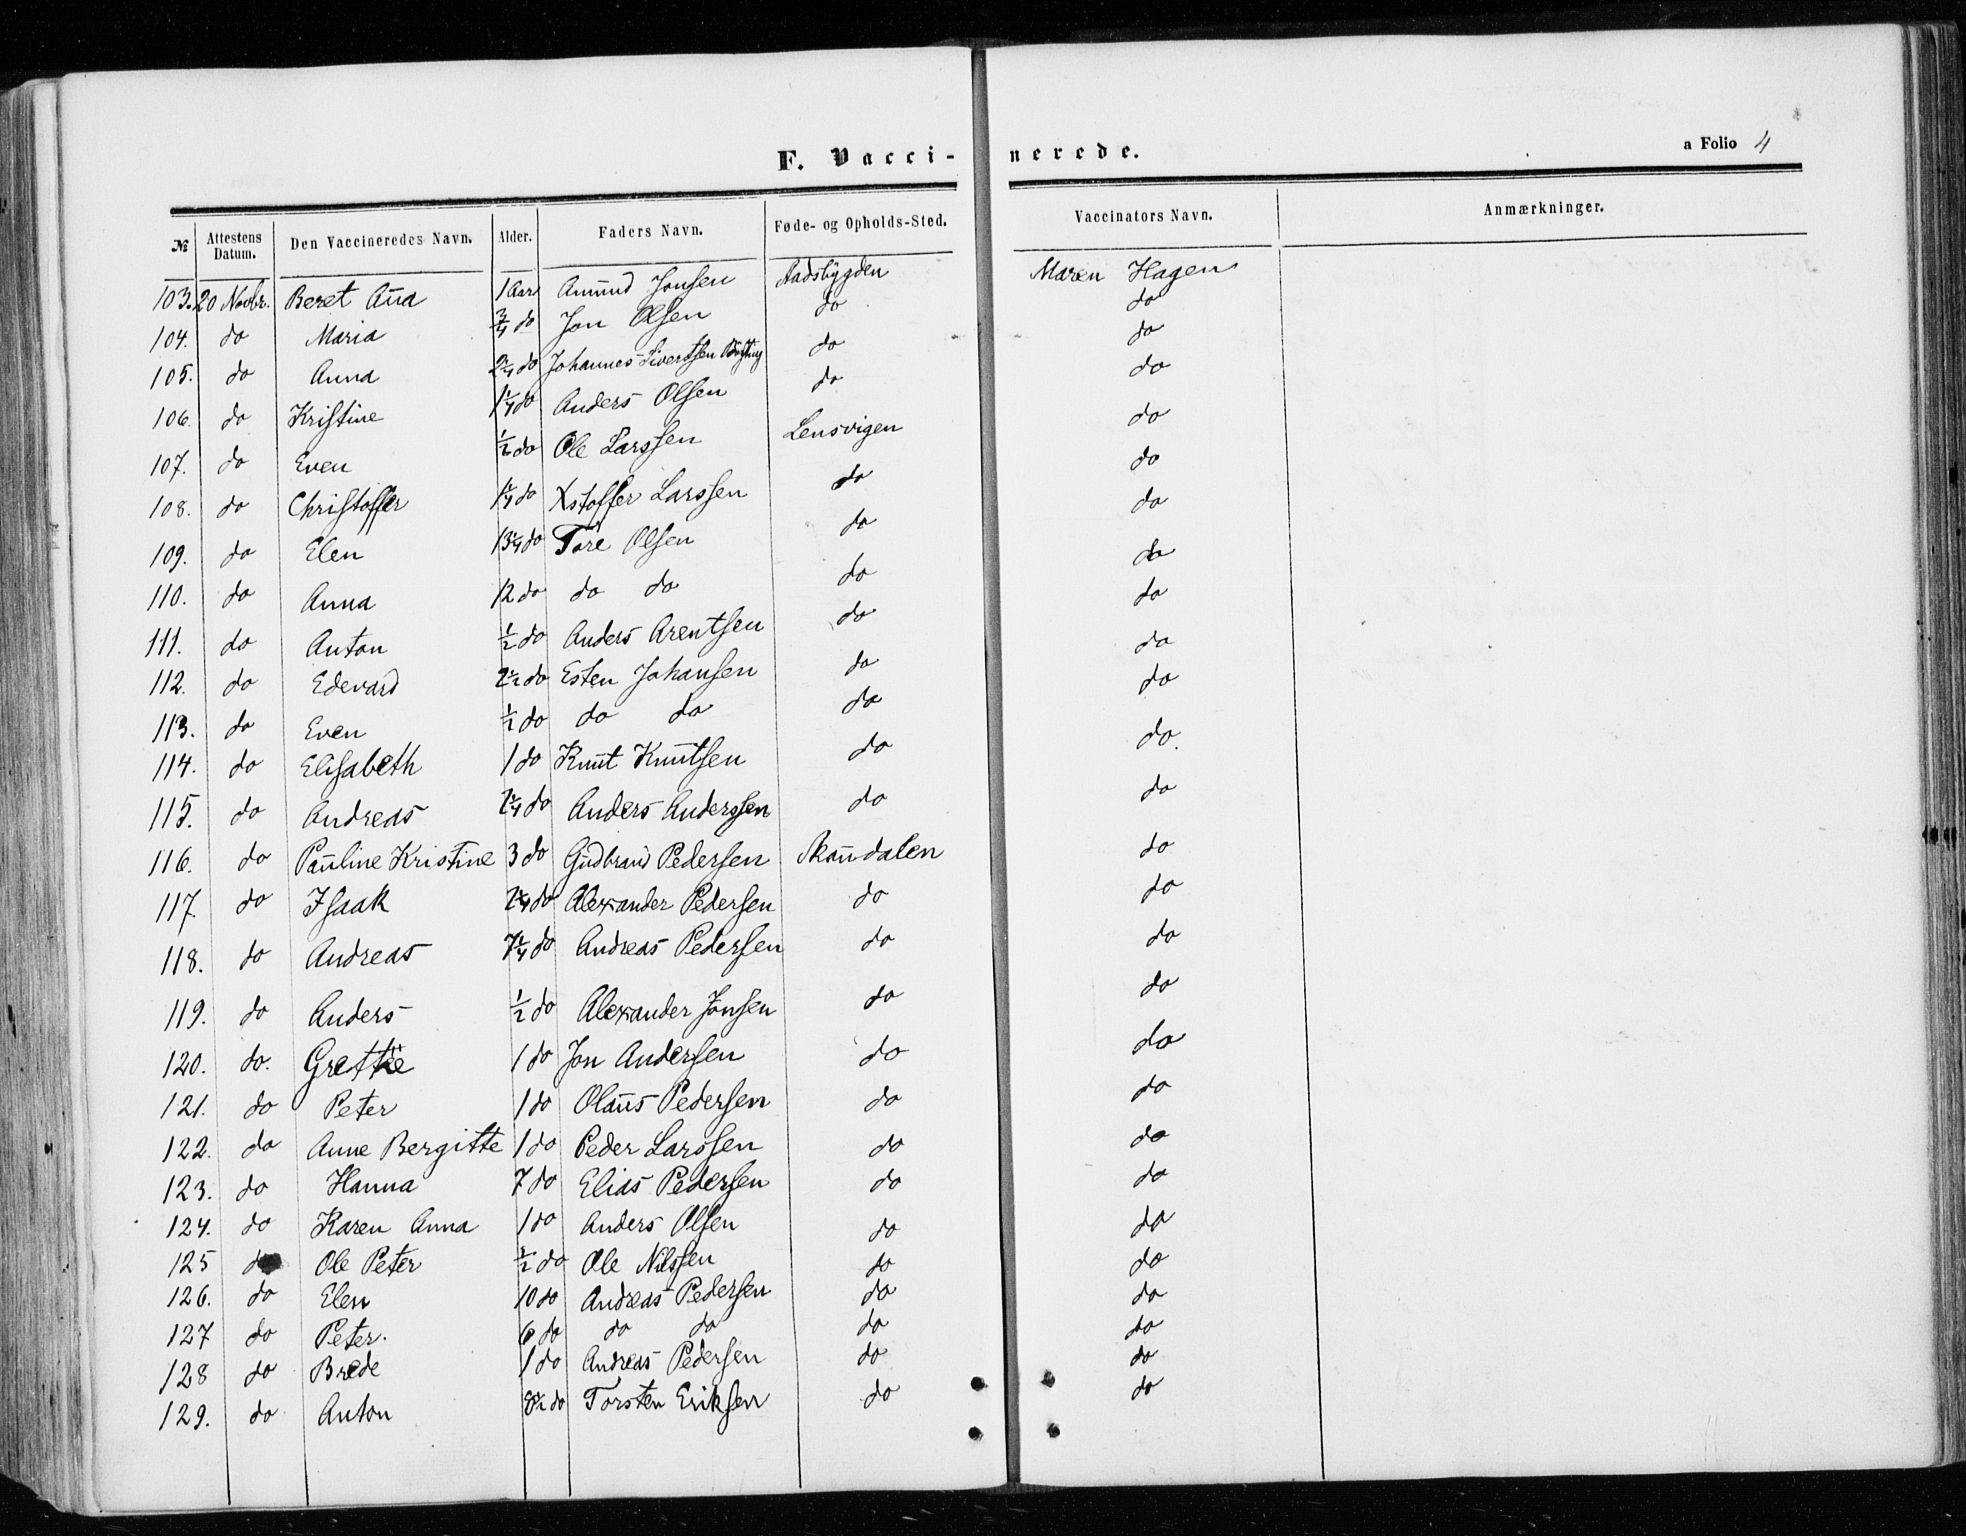 F. Vaccinerede. a Folio 4
№ Attestens Datum. Den Vaccineredes Navn. Alder. Faders Navn. Føde- og Opholds-Sted. Vaccinators Navn. Anmærkninger.
103. 20 Novbr. Beret Aña 1 Aar Amund Jonsen Stadsbygden Maren Hagen
104. do Maria 3/4 do Jon Olsen do do
105. do Anna 2 1/4 do Johannes Sivertsen do do
106. do Kristine 1 1/4 do Anders Olsen do do
107. do Even 1/2 do Ole Larssen Lensvigen do
108. do Christoffer 1 1/4 do Xstoffer Larssen do do
109. do Elen 13 1/4 do Tore Olsen do do
110. do Anna 12 do do do do do
111. do Anton 1/2 do Anders Arentsen do do
112. do Edevard 2 1/2 do Esten Johansen do do
113. do Even 1/2 do do do do do
114. do Elisabeth 1 do Knut Knutsen do do
115. do Andreas do Anders Anderssen do do
116. do Pauline Kristine 3 do Gudbrand Pedersen Skaudalen do
117. do Isaak do Alexander Pedersen do do
118. do Andreas 7 1/4 do Andreas Pedersen do do
119. do Anders 1/2 do Alexander Jonsen do do
120. do. Grethe 1 do Jon Andersen do do
121. do Peter 1 do Olaus Pedersen do do
122. do Anne Bergitte 1 do Peder Larssen do do
123. do Hanna 7 do Elias Pedersen do do
124. do Karen Anna 1 do Anders Olsen do do
125 do Ole Peter 1/2 do Ole Nilssen do do
126. do Elen 10 do Andreas Pedersen do do
127 do Peter. 6 do do do do do
128 do Brede 1 do Andreas Pedersen do do
129. do Anton 8 1/2 do Torsten Eriksen do do